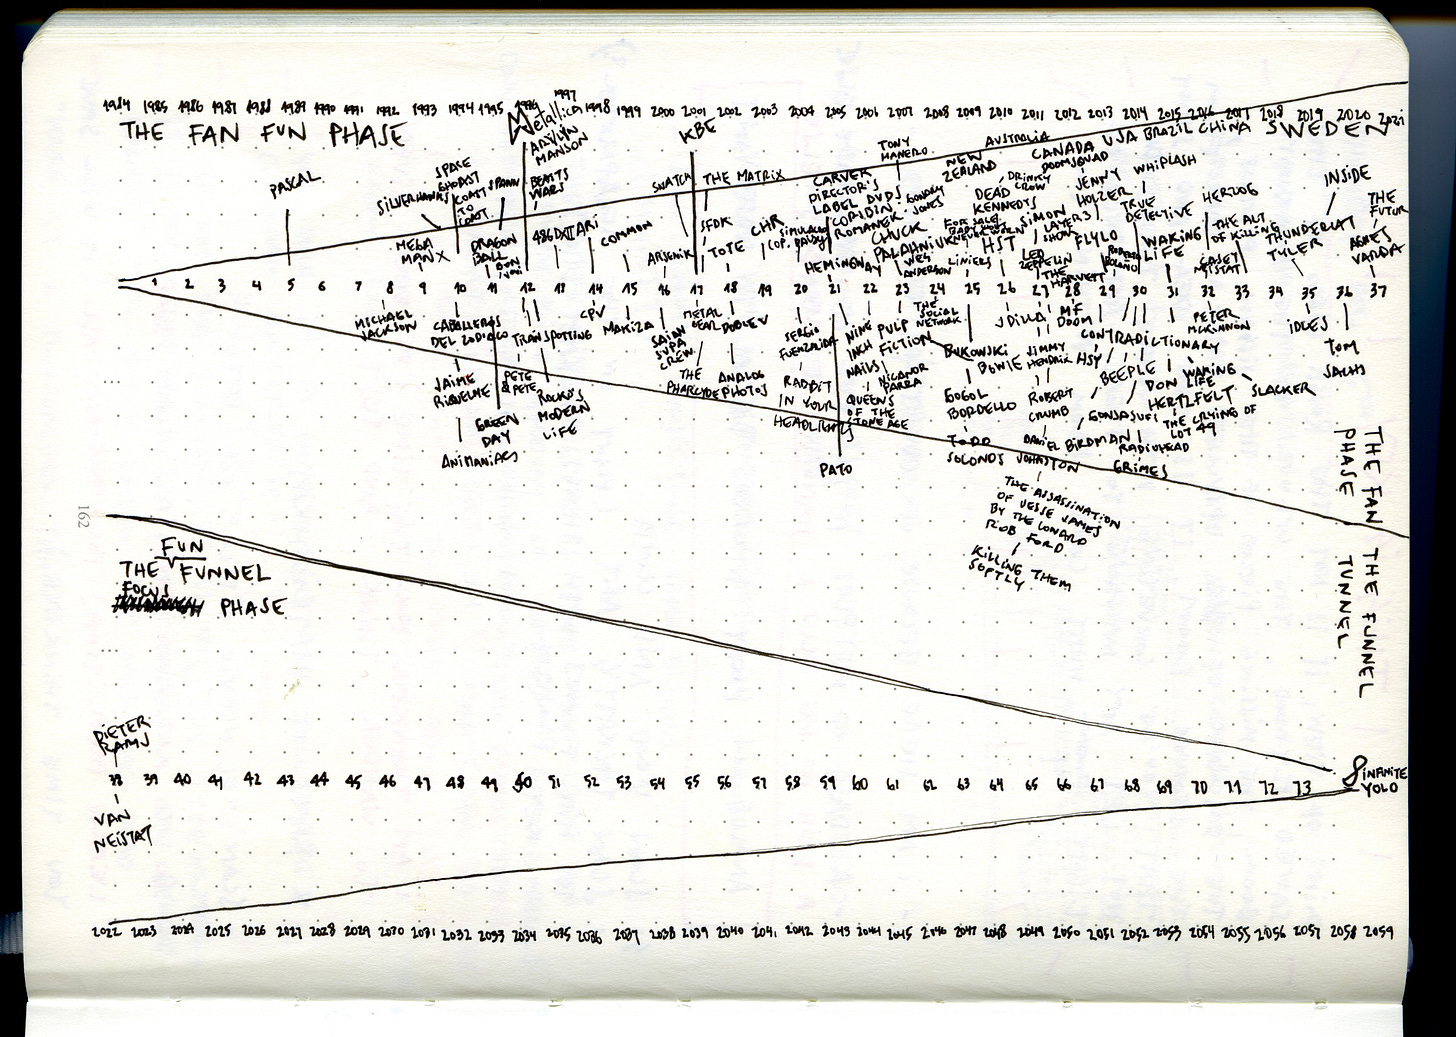 1984 1985 1986 1987 1988 1989 1990 1991 1992 1993 1994 1995 1996 1997 1998 1999 2000 2001 2002 2003 2004 2005 2006 2007 2008 2009 2010 2011 2012 2013 2014 2015 2016 2017 2018 2019 2020 2021
THE FAN FUN PHASE
PASCAL
SILVERHAWKS
SPACE
GHOAST
COAST
TO
COAST
SPAWN
MEGA
MAN X
DRAGON
BALL
BON
JOVI
Metallica
MARILYN
MANSON
BEASTS
WARS
486 DXII
ATARI
COMMON
SNATCH
ARSENIK
KBE
THE MATRIX
SFDK
TOTE
CHR
CARVER
DIRECTOR'S
LABEL DVDS
COPIDIN
ROMANEK
HEMINGWAY
TONY
MANERO
GONDRY
JONES
CHUCK
PALAHNIUK
WES
ANDERSON
NEW
ZEALAND
DEAD
KENNEDYS
FOR SALE
BABY SHOES
NEVER WORN
LINIERS
HST
AUSTRALIA
DRINKY
CROW
SIMON
LED
ZEPPELIN
CANADA
DOOMSQUAD
JENNY
HOLZER
FLYLO
THE
HARVEST
ROBERTO
BOLAÑO
USA
BRAZIL
CHINA
SWEDEN
WHIPLASH
TRUE
DETECTIVE
WAKING
LIFE
HERZOG
THE ALT
OF KILLING
CASEY
NEISTAT
THUNDERCAT
TYLER
INSIDE
THE
FUTUR
AGNES
VARDA
1 2 3 4 5 6 7 8 9 10 11 12 13 14 15 16 17 18 19 20 21 22 23 24 25 26 27 28 29 30 31 32 33 34 35 36 37
MICHAEL
JACKSON
CABALLEROS
DEL ZODIACO
JAIME
RIQUELME
ANIMANIACS
GREEN
DAY
TRAINSPOTTING
PETE
& PETE
ROCKO'S
MODERN
LIFE
CPV
MAKIZA
SAIAN
SUPA
CREW
METAL
GEAR
THE
PHARCYDE
DOBLE V
ANALOG
PHOTOS
SERGIO
FUENZALIDA
RABBIT
IN YOUR
HEADLIGHTS
PATO
NINE
INCH
NAILS
QUEENS
OF THE
STONE AGE
PULP
FICTION
NICANOR
PARRA
THE
SOCIAL
NETWORK
BUKOWSKI
GOGOL
BORDELLO
TODD
SOLONDS
J DILLA
BOWIE
JIMMY
HENDRIX
ROBERT
CRUMB
DANIEL
JOHNSTON
THE ASSASSINATION
OF JESSE JAMES
BY THE COWARD
ROB FORD
KILLING THEM
SOFTLY
MF
DOOM
HST
CONTRADICTIONARY
BEEPLE
GONJASUFI
BIRDMAN
RADIOHEAD
GRIMES
DON
HERTZFELT
WAKING
LIFE
THE CRYING OF
LOT 49
PETER
MCKINNON
SLACKER
IDLES
TOM
SACHS
THE FAN
PHASE
THE FUNNEL
TUNNEL
162
FUN
THE FUNNEL
FOCUS
PHASE
DIETER
RAMS
38 39 40 41 42 43 44 45 46 47 48 49 50 51 52 53 54 55 56 57 58 59 60 61 62 63 64 65 66 67 68 69 70 71 72 73
INFINITE
YOLO
VAN
NEISTAT
2022 2023 2024 2025 2026 2027 2028 2029 2030 2031 2032 2033 2034 2035 2036 2037 2038 2039 2040 2041 2042 2043 2044 2045 2046 2047 2048 2049 2050 2051 2052 2053 2054 2055 2056 2057 2058 2059